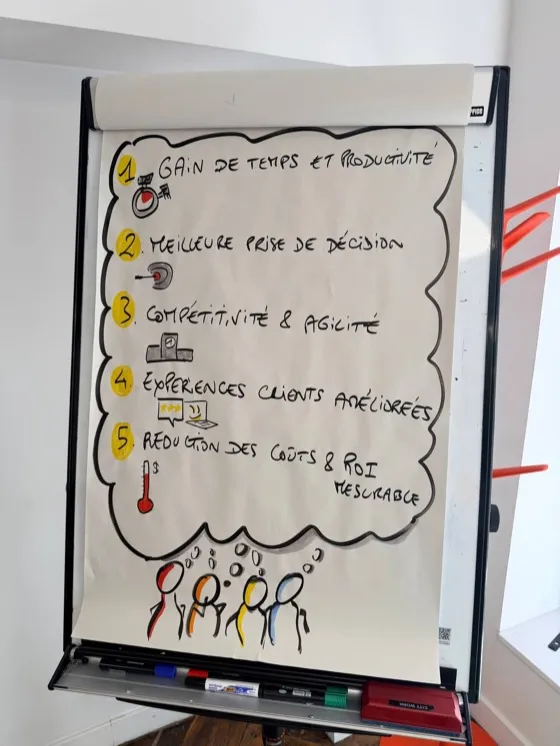 1. GAIN DE TEMPS ET PRODUCTIVITÉ
2. MEILLEURE PRISE DE DÉCISION
3. COMPÉTITIVITÉ & AGILITÉ
1
4. EXPÉRIENCES CLIENTS AMÉLIORÉES
5. RÉDUCTION DES COÛTS & ROI
MESURABLE